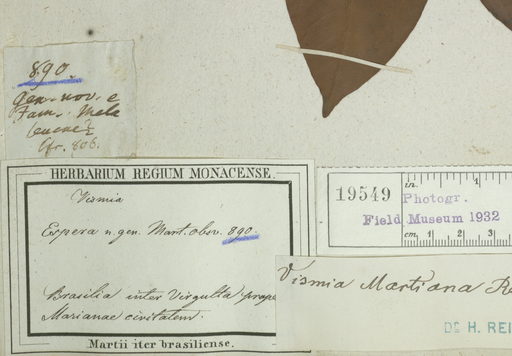 890.
Gen. nov. e
Fam. Mela
leucae?
Cfr. 806.
HERBARIUM REGIUM MONACENSE.
Vismia
Espera n. gen. Mart. obs. 890.
Brasilia inter Virgulta prope
Marianae civitatem.
Martii iter brasiliense.
19549
in. 1
Photogr.
Field Museum 1932
cm 1 2 3
Vismia Martiana Re
DR H. REI